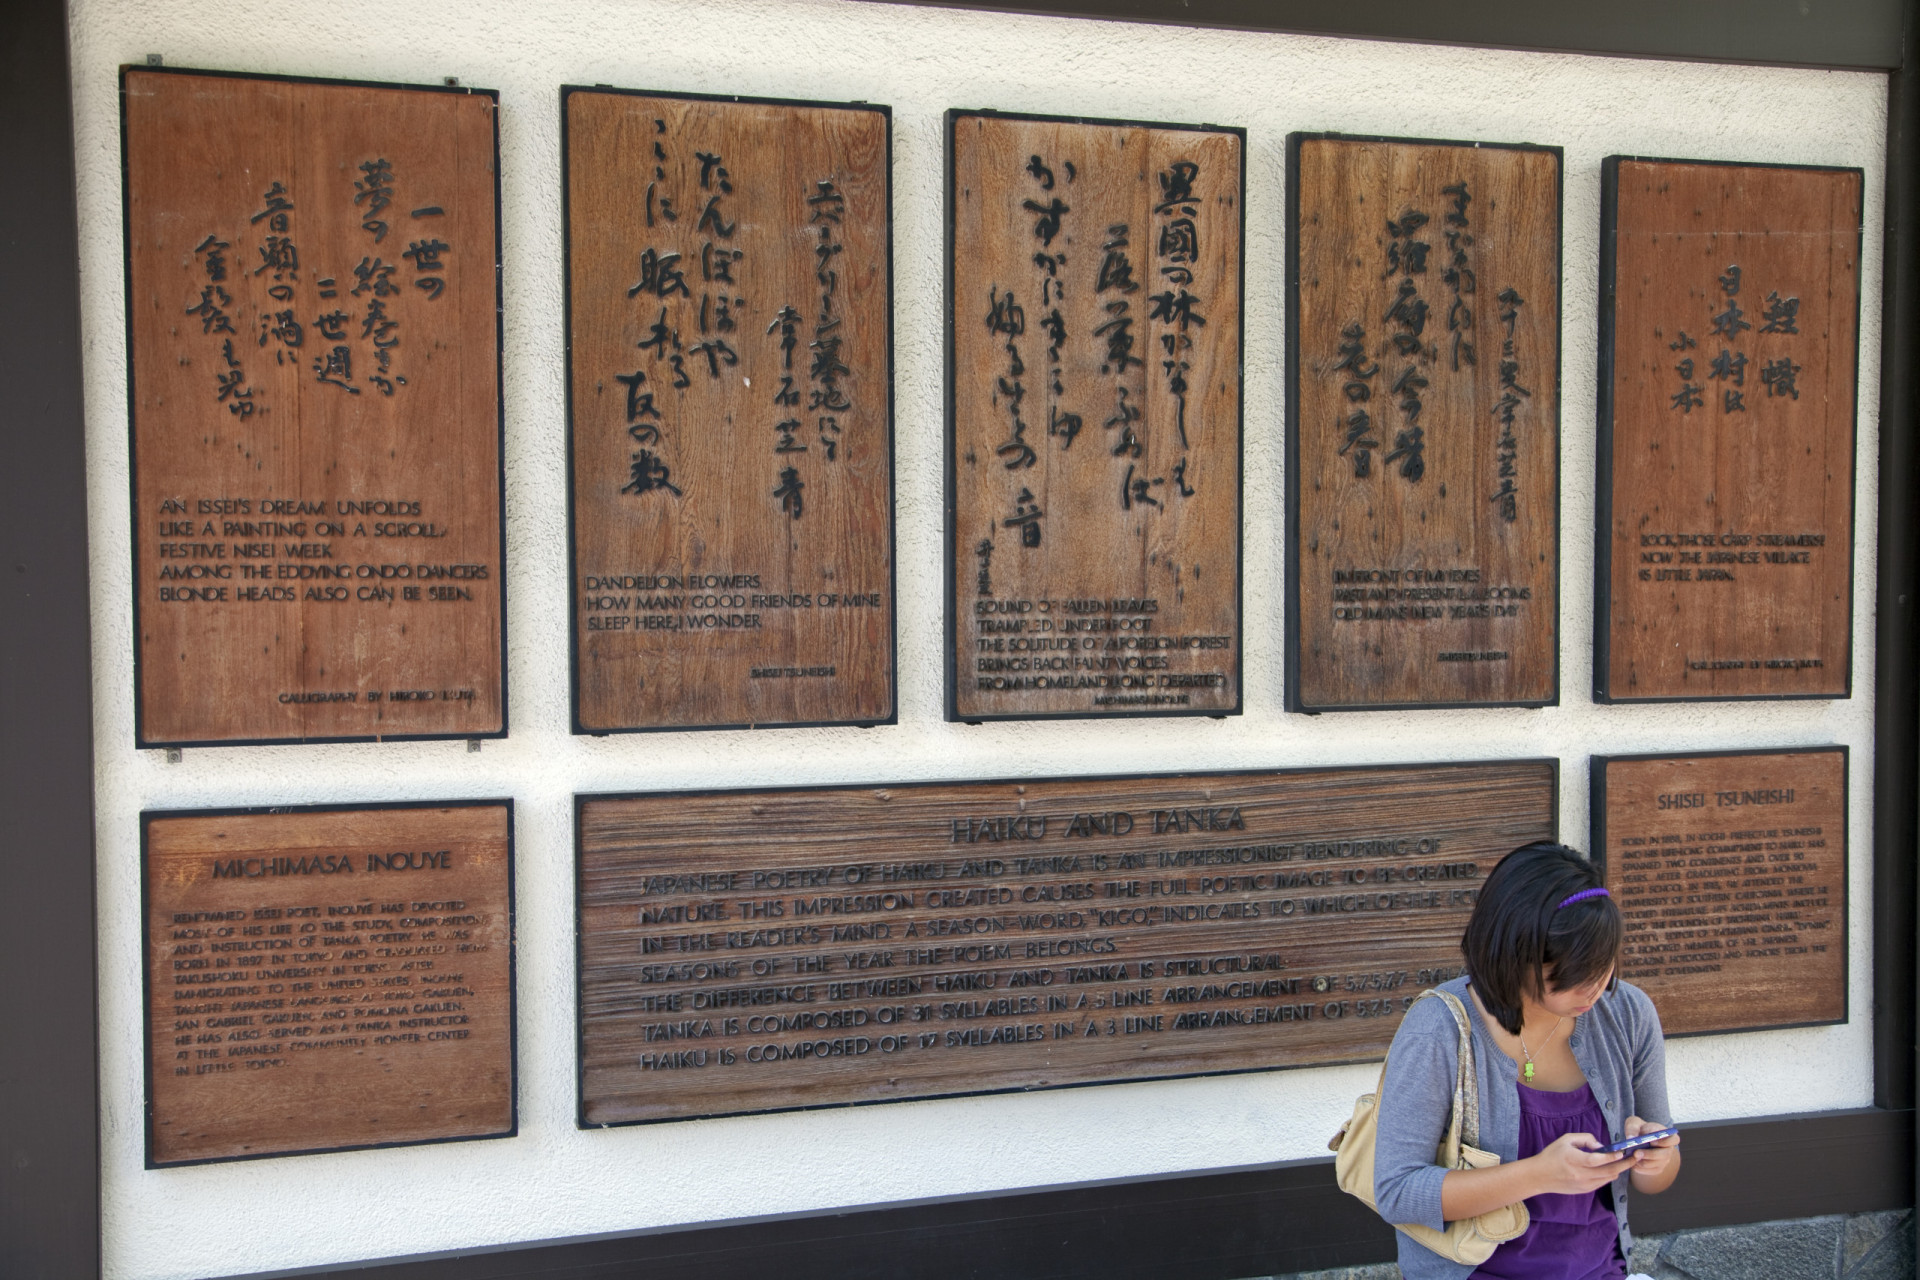 一世の
夢の絵巻きか
二世週
音頭の渦に
金髪も見ゆ
AN ISSEI'S DREAM UNFOLDS
LIKE A PAINTING ON A SCROLL,
FESTIVE NISEI WEEK
AMONG THE EDDYING ONDO DANCERS
BLONDE HEADS ALSO CAN BE SEEN.
CALLIGRAPHY BY HIROKO
エバーグリーン墓地にて
常石芝青
たんぽぽや
ここに眠れる
友の数
DANDELION FLOWERS
HOW MANY GOOD FRIENDS OF MINE
SLEEP HERE, I WONDER
SHISEI TSUNEISHI
異國の林かなしも
落葉ふめば
かすかにきこゆ
音
SOUND OF FALLEN LEAVES
TRAMPLED UNDERFOOT
THE SOLITUDE OF A FOREIGN FOREST
BRINGS BACK FAINT VOICES
FROM HOMELAND LONG DEPARTED
MICHIMASA INOUYE
九十三叟常石芝青
まなかひに
今昔
老の春
IN FRONT OF MY EYES
PAST AND PRESENT LA LOOMS
OLD MAN'S NEW YEAR'S DAY
SHISEI TSUNEISHI
鯉幟
日本村は
小日本
LOOK, THOSE CARP STREAMERS!
NOW THE JAPANESE VILLAGE
IS LITTLE JAPAN.
CALLIGRAPHY BY HIROKO
MICHIMASA INOUYE
RENOWNED ISSEI POET, INOUYE HAS DEVOTED
MOST OF HIS LIFE TO THE STUDY, COMPOSITION
AND INSTRUCTION OF TANKA POETRY. HE WAS
BORN IN 1897 IN TOKYO AND GRADUATED FROM
TAKUSHOKU UNIVERSITY IN TOKYO. AFTER
IMMIGRATING TO THE UNITED STATES, INOUYE
TAUGHT JAPANESE LANGUAGE AT TOYO GAKUEN,
SAN GABRIEL GAKUEN, AND POMONA GAKUEN.
HE HAS ALSO SERVED AS A TANKA INSTRUCTOR
AT THE JAPANESE COMMUNITY PIONEER CENTER
IN LITTLE TOKYO.
HAIKU AND TANKA
JAPANESE POETRY OF HAIKU AND TANKA IS AN IMPRESSIONIST RENDERING OF
NATURE. THIS IMPRESSION CREATED CAUSES THE FULL POETIC IMAGE TO BE CREATED
IN THE READER'S MIND. A SEASON-WORD, "KIGO," INDICATES TO WHICH OF THE
SEASONS OF THE YEAR THE POEM BELONGS.
THE DIFFERENCE BETWEEN HAIKU AND TANKA IS STRUCTURAL.
TANKA IS COMPOSED OF 31 SYLLABLES IN A 5 LINE ARRANGEMENT OF 5.7.5.7.7
HAIKU IS COMPOSED OF 17 SYLLABLES IN A 3 LINE ARRANGEMENT OF 5.7.5
SHISEI TSUNEISHI
BORN IN 1888, IN KOCHI PREFECTURE TSUNEISHI
AND HIS LIFE-LONG COMMITMENT TO HAIKU HAS
SPANNED TWO CONTINENTS AND OVER
YEARS. AFTER GRADUATING FROM
HIGH SCHOOL IN HE ATTENDED THE
UNIVERSITY OF SOUTHERN CALIFORNIA WHERE HE
STUDIED LITERATURE.
HONORED MEMBER OF THE JAPANESE
MAGAZINE, HOTOTOGISU AND HONORS FROM THE
JAPANESE GOVERNMENT.